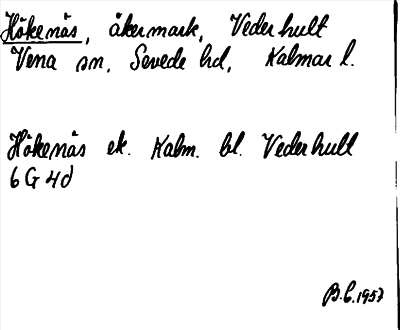 Hökenäs, åkermark, Vederhult
Vena sn, Sevede hd, Kalmar l.
Hökenäs ek. Kalm. bl. Vederhult
6 G 4d
B.C. 1957